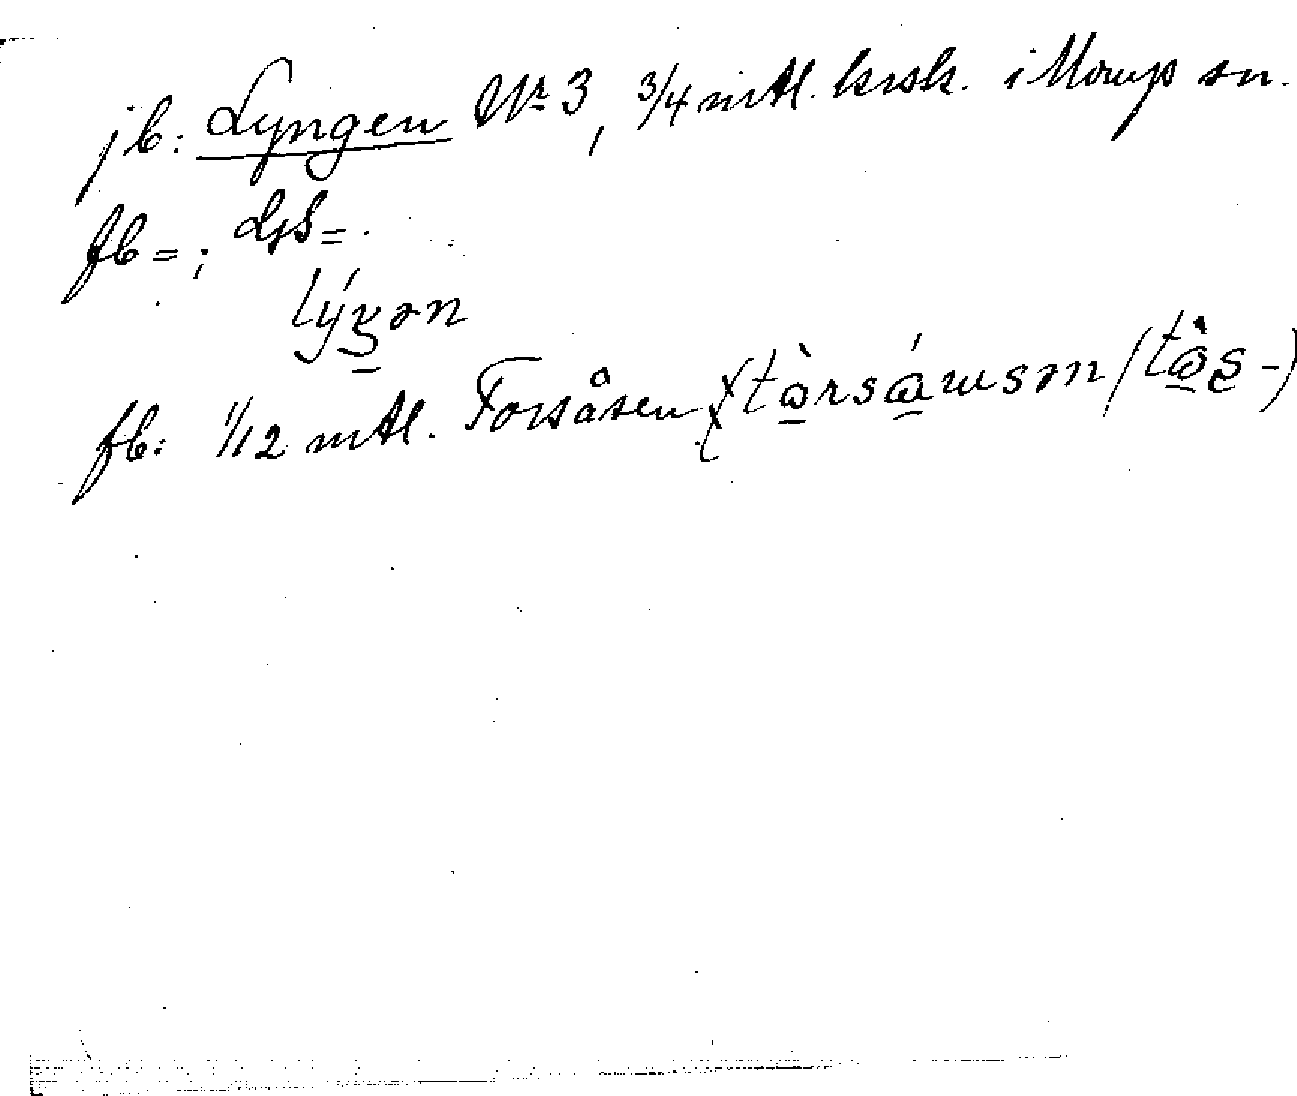 jb: Lyngen Nr 3, 3/4 mtl. krsk. i Morup sn.
fb = ; GS = .
lýŋən
fb: 1/12 mtl. Torsåsen (tòrsáωsən (tòs -)